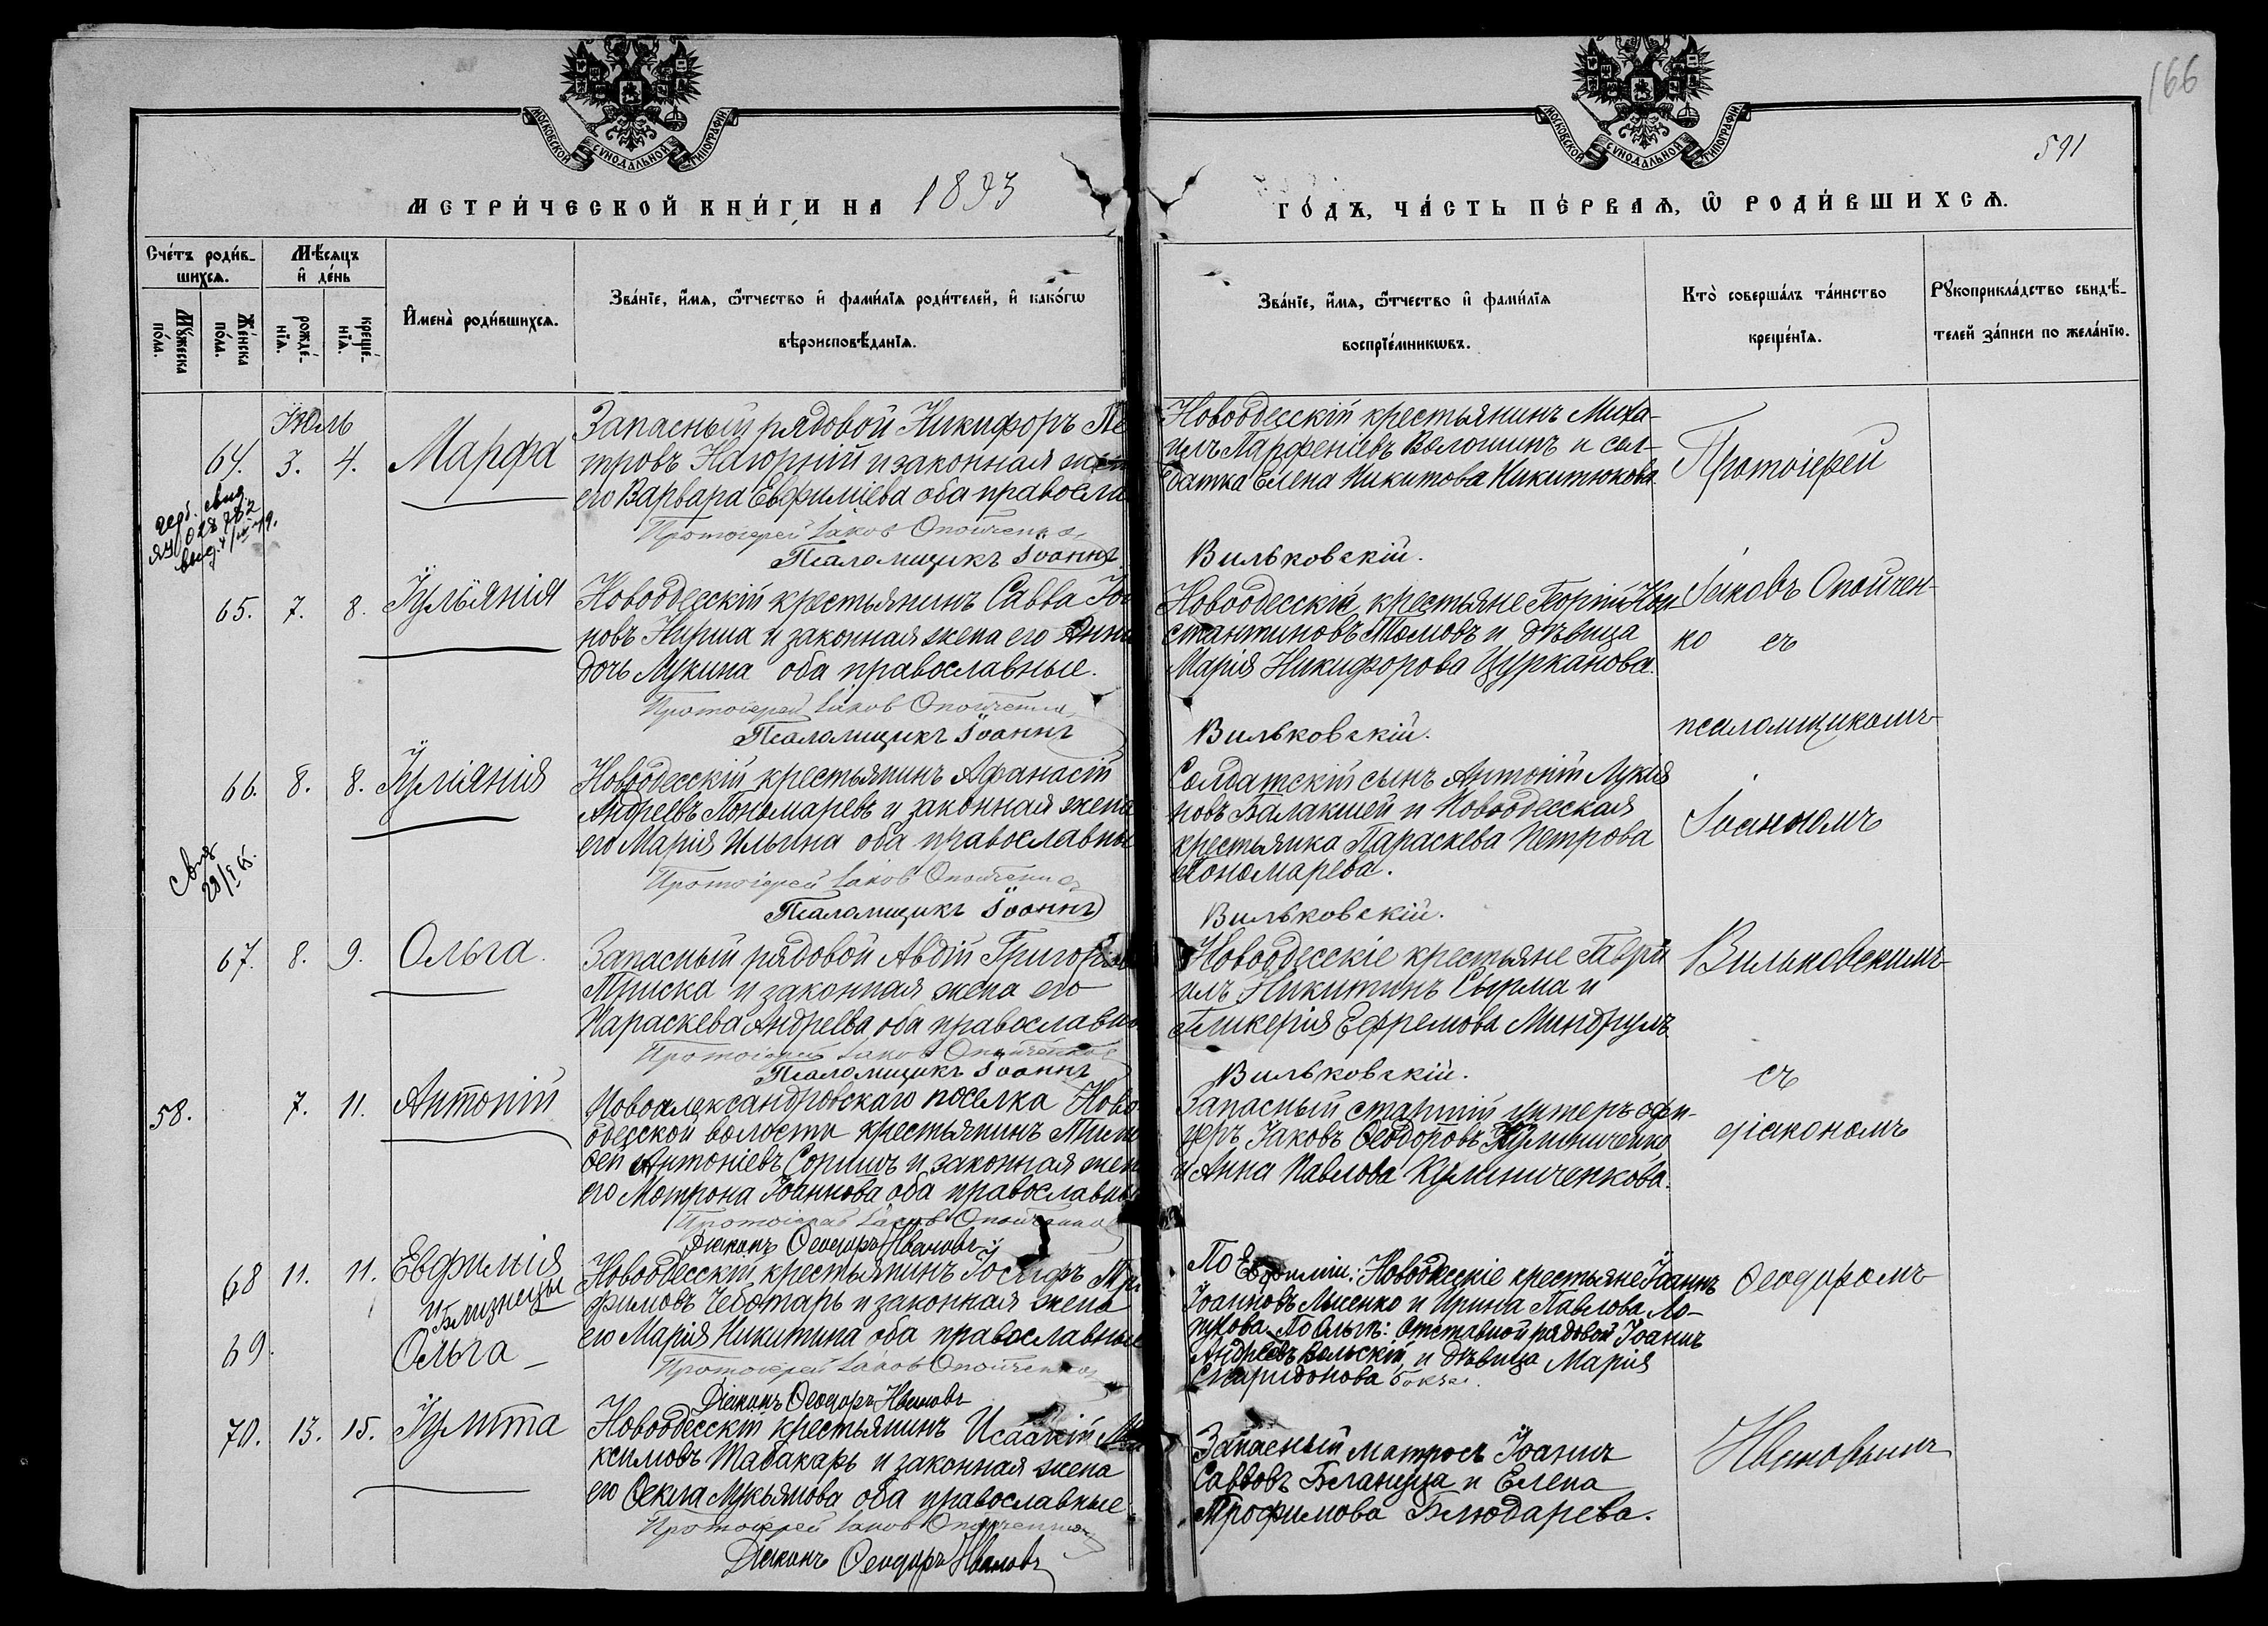 166
591
МОСКОВСКОЙ СѴНОДАЛЬНОЙ ТИПОГРАФІИ
МОСКОВСКОЙ СѴНОДАЛЬНОЙ ТИПОГРАФІИ
МЕТРИ́ЧЕСКОЙ КНИ́ГИ НА 1893
ГО́ДЪ, ЧА́СТЬ ПЕ́РВАѦ, Ѡ РОДИ́ВШИХСѦ.
Сче́тъ роди́в-
шихсѧ.
Мꙋ́жеска по́ла.
Же́нска по́ла.
Мѣ́сѧцъ и҆ де́нь
рожде́-нїѧ.
креще́-нїѧ.
И҆мена̀ роди́вшихсѧ.
Зва́нїе, и҆́мѧ, ѻ҆́тчество и҆ фами́лїѧ роди́телей, и҆ како́гѡ
вѣроисповѣ́данїѧ.
Зва́нїе, и҆́мѧ, ѻ҆́тчество и҆ фами́лїѧ
воспрїе́мникѡвъ.
Кто̀ соверша́лъ та́инство
креще́нїѧ.
Рꙋкоприкла́дство свидѣ́-
телей за́писи по жела́нїю.
Іюль
64. 3. 4. Марфа
Запасный рядовой Никифоръ Пе
тровъ Нагорній и законная жен
его Варвара Евфиміева оба правосла
Протоіерей Іаков Опойченко
Псаломщикъ Іоаннъ
Новоодесскій крестьянинъ Миха-
илъ Парфеніевъ Волошинъ и сол-
датка Елена Никитова Никитюкова
Вильковскій.
Протоіерей
65. 7. 8. Іульянія
Новоодесскій крестьянинъ Савва Іоа
новъ Кирма и законная жена его Анна
дочь Лукина оба православные.
Протоіерей Іаков Опойченко
Псаломщикъ Іоаннъ
Новоодесскіе крестьяне Георгій Кон
стантиновъ Томовъ и дѣвица
Марія Никифорова Цурканова.
Вильковскій.
Іаковъ Опойчен-
ко съ
псаломщикомъ
66. 8. 8. Іуліянія
Новоодесскій крестьянинъ Афанасій
Андреевъ Пономаревъ и законная жена
его Марія Ильина оба православны
Протоіерей Іаков Опойченко
Псаломщикъ Іоаннъ
Солдатскій сынъ Антоній Лукія
новъ Балакшей и Новоодесская
крестьянка Параскева Петрова
Пономарева.
Вильковскій.
Іоанномъ
67. 8. 9. Ольга.
Запасный рядовой Авдій Григорье
Триска и законная жена его
Параскева Андреева оба православны
Протоіерей Іаков Опойченко
Псаломщикъ Іоаннъ
Новоодесскіе крестьяне Гаври
илъ Никитинъ Сырма и
Гликерія Ефремова Миндрулъ
Вильковскій.
Вильковскимъ
58. 7. 11. Антоній
Новоалександровскаго поселка Ново
одесской волости крестьянинъ Тимо
фей Антоніевъ и законная жен
его Мотрона Іоаннова оба православны
Протоіерей Іаков Опойченко
Діаконъ Ѳеодоръ Ивановъ
Запасный старшій унтеръ-офи-
церъ Іаковъ Ѳеодоровъ Кулиниченко
и Анна Павлова Кулиниченкова.
съ
діакономъ
68 11. 11. Евфимія
и Близнецы
69. Ольга
Новоодесскій крестьянинъ Іосифъ Тро
фимовъ Чеботарь и законная жена
его Марія Никитина оба православные
Протоіерей Іаков Опойченко
Діаконъ Ѳеодоръ Ивановъ
По Евфиміи: Новоодесскіе крестьяне Іоаннъ
Іоанновъ Лысенко и Ирина Павлова Ло-
По Ольгѣ: отставной рядовой Іоаннъ
Андреевъ Вольскій и дѣвица Марія
Спиридонова
Ѳеодоромъ
70. 13. 15. Іулитта
Новоодесскій крестьянинъ Исаакій Ма
ксимовъ Табакарь и законная жена
его Ѳекла Лукьянова оба православные.
Протоіерей Іаков Опойченко
Діаконъ Ѳеодоръ Ивановъ
Запасный матросъ Іоаннъ
Саввовъ Блануца и Елена
Трофимова Блюдарева.
Ивановымъ